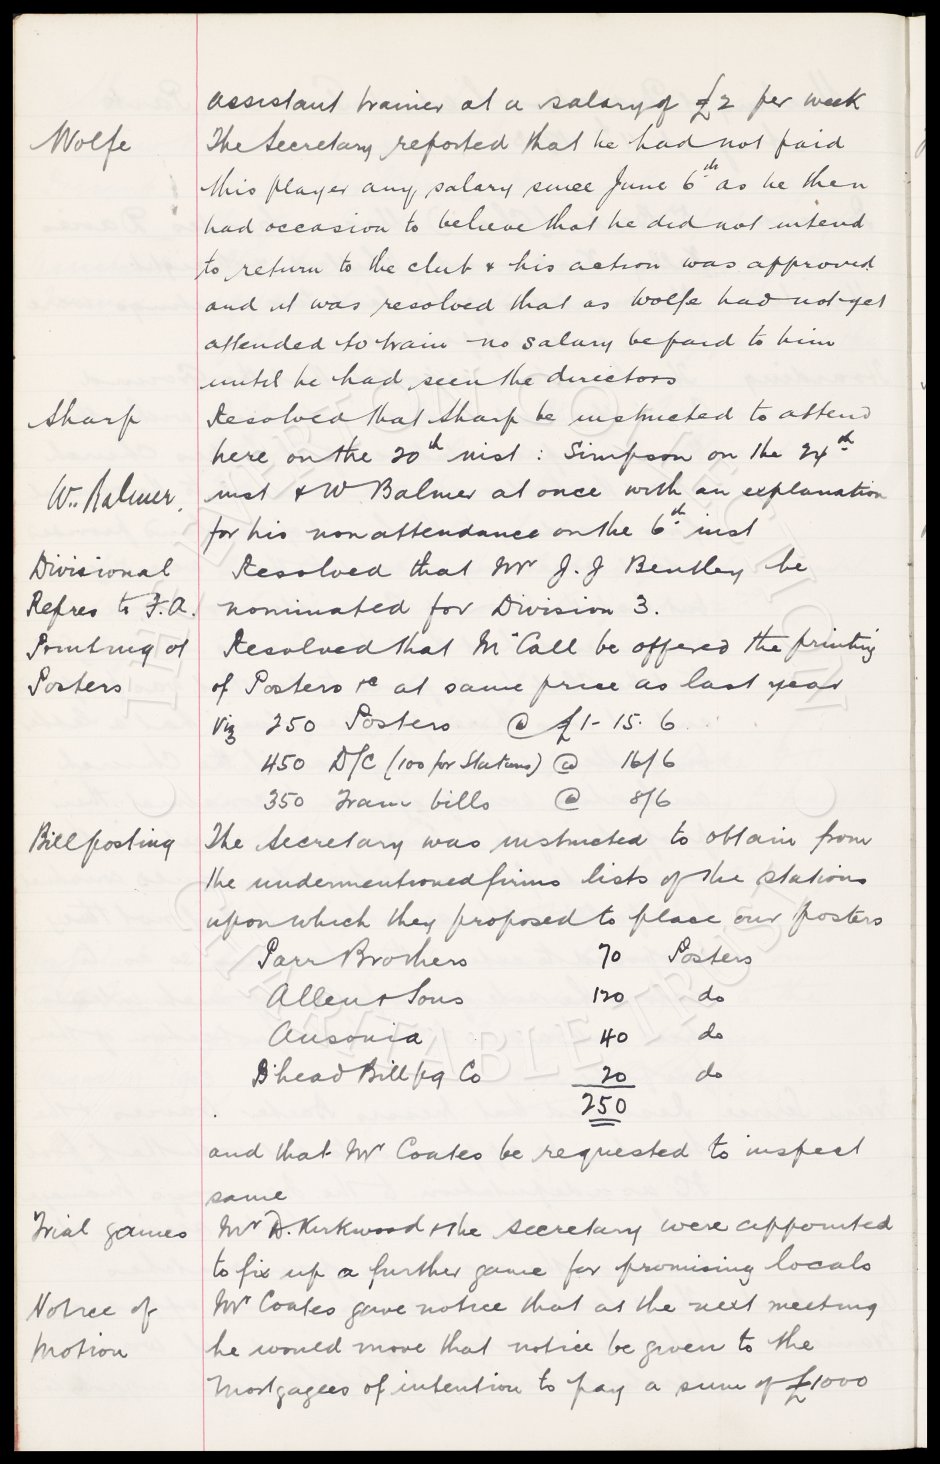 assistant trainer at a salary of £2 per week
Wolfe The Secretary reported that he had not paid
this player any salary since June 6th as he then
had occasion to believe that he did not intend
to return to the club & his action was approved
and it was resolved that as Wolfe had not yet
attended to train no salary be paid to him
until he had seen the directors
Sharp Resolved that Sharp be instructed to attend
here on the 20th inst : Simpson on the 24th
W. Balmer. inst & W Balmer at once with an explanation
for his non attendance on the 6th inst
Divisional Resolved that Mr J. J Bentley be
Repres to F.A. nominated for Division 3.
Printing of Resolved that McCall be offered the printing
Posters of Posters &c at same price as last year
Viz 250 Posters @ £1-15.6
450 D/C (100 for Stations) @ 16/6
350 Tram bills @ 8/6
Billposting The Secretary was instructed to obtain from
the undermentioned firms lists of the stations
upon which they proposed to place our posters
Parr Brothers 70 Posters
Allen & Sons 120 do
Ausonia 40 do
B'head Billpg Co 20 do
250
and that Mr Coates be requested to inspect
same
Trial games Mr D. Kirkwood & the secretary were appointed
to fix up a further game for promising locals
Notice of Mr Coates gave notice that at the next meeting
Motion he would move that notice be given to the
Mortgagees of intention to pay a sum of £1000
EVERTON COLLECTION
CHARITABLE TRUST